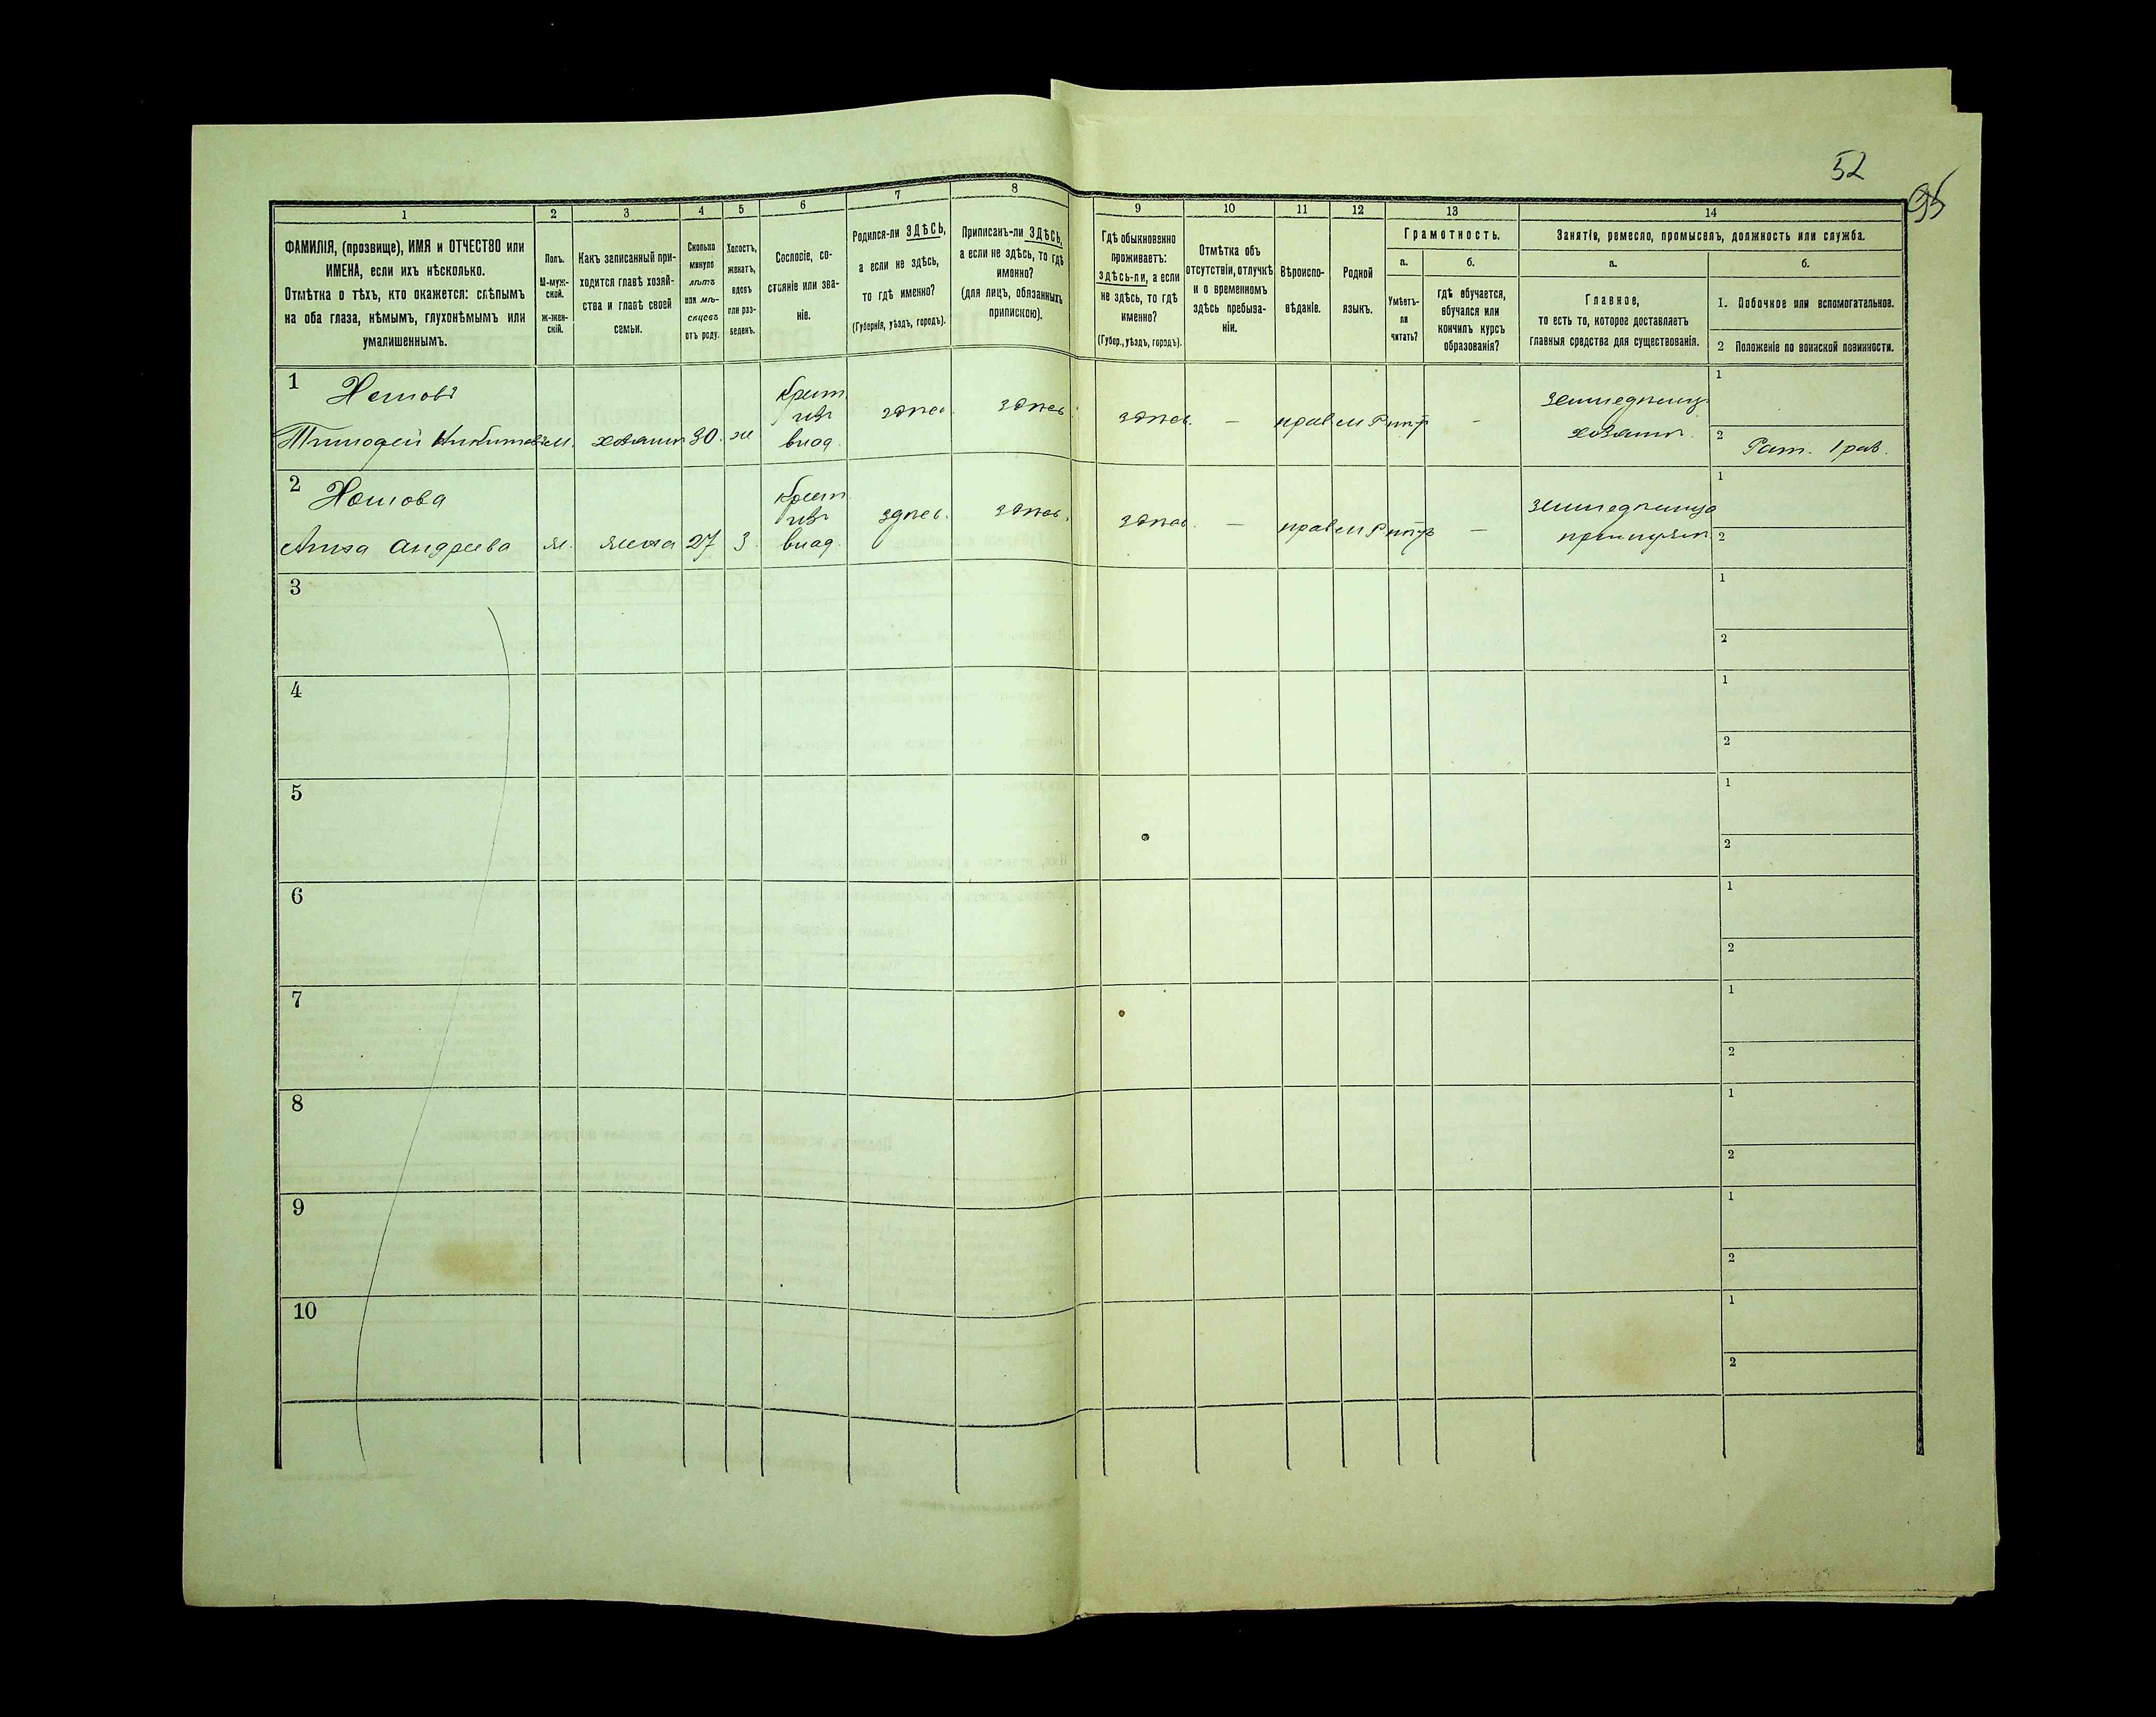 52
95
1
2
3
4
5
6
7
8
9
10
11
12
13
14
ФАМИЛІЯ, (прозвище), ИМЯ и ОТЧЕСТВО или
ИМЕНА, если ихъ нѣсколько.
Отмѣтка о тѣхъ, кто окажется: слѣпымъ
на оба глаза, нѣмымъ, глухонѣмымъ или
умалишеннымъ.
Полъ.
М-муж-
ской.
ж-жен-
скій.
Какъ записанный при-
ходится главѣ хозяй-
ства и главѣ своей
семьи.
Сколько
минуло
лѣтъ
или мѣ-
сяцевъ
отъ роду.
Холостъ,
женатъ,
вдовъ
или раз-
веденъ.
Сословіе, со-
стояніе или зва-
ніе.
Родился-ли ЗДѢСЬ,
а если не здѣсь,
то гдѣ именно?
(Губернія, уѣздъ, городъ).
Приписанъ-ли ЗДѢСЬ,
а если не здѣсь, то гдѣ
именно?
(для лицъ, обязанныхъ
припискою).
Гдѣ обыкновенно
проживаетъ:
здѣсь-ли, а если
не здѣсь, то гдѣ
именно?
(Губер., уѣздъ, городъ).
Отмѣтка объ
отсутствіи, отлучкѣ
и о временномъ
здѣсь пребыва-
ніи.
Вѣроиспо-
вѣданіе.
Родной
языкъ.
Грамотность.
а.
Умѣетъ-
ли
читать?
б.
гдѣ обучается,
обучался или
кончилъ курсъ
образованія?
Занятіе, ремесло, промыселъ, должность или служба.
а.
Главное,
то есть то, которое доставляетъ
главныя средства для существованія.
б.
1. Побочное или вспомогательное.
2 Положеніе по воинской повинности.
1
Тимофей Никитовъ м. хозяинъ 30. ж
Крест
изъ
влад.
здѣсь.
здѣсь.
здѣсь.
—
прав
нѣтъ
—
земледѣлец
хозяинъ.
1
2 Рат. 1 раз.
2
Анна Андреева
жена 27 з.
Крест
изъ
влад.
здѣсь.
здѣсь.
здѣсь.
—
прав
нѣтъ
—
1
2
3
1
2
4
1
2
5
1
2
6
1
2
7
1
2
8
1
2
9
1
2
10
1
2